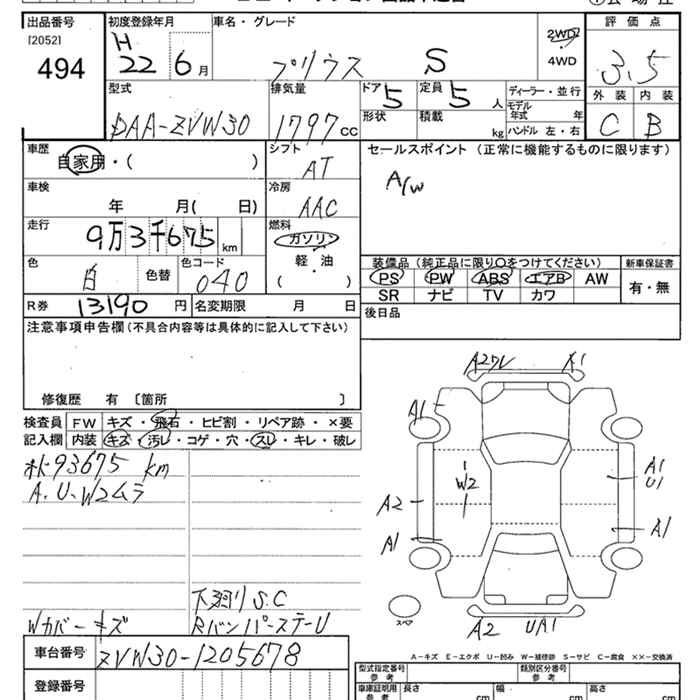 出品番号 初度登録年月 車名・グレード 評価点
[2052] 494
H 22 6月
プリウス S
2WD
4WD
3.5
外装 内装
C B
型式 排気量 ドア 定員 ディーラー・並行
DAA-ZVW30 1797cc 5 5人
形状 積載 kg
モデル年式 年
ハンドル 左・右
車歴 自家用・( )
シフト AT
セールスポイント (正常に機能するものに限ります)
A/W
車検 年 月( 日)
冷房 AAC
走行 9万3千675km
燃料 ガソリン 軽・油 ( )
色 白 色替 色コード 040
装備品 (純正品に限り○をつけてください) 新車保証書
PS PW ABS エアB AW 有・無
SR ナビ TV カワ
R券 13190円 名変期限 月 日
後日品
注意事項申告欄 (不具合内容等は具体的に記入して下さい)
修復歴 有 〔箇所 〕
検査員 FW キズ・飛石・ヒビ割・リペア跡・×要
記入欄 内装 キズ・汚レ・コゲ・穴・スレ・キレ・破レ
93675 km
A.U.W2ムラ
下廻りS.C
Wカバーキズ
RバンパーステーU
A2ワレ A1
A1
W2
A1
U1
A2
A1
A1
スペア
A2 UA1
A-キズ E-エクボ U-凹み W-補修跡 S-サビ C-腐食 ××-交換済
車台番号 ZVW30-1205678
登録番号
型式指定番号 参考 類別区分番号 参考
車庫証明用 参考 長さ cm 幅 cm 高さ cm